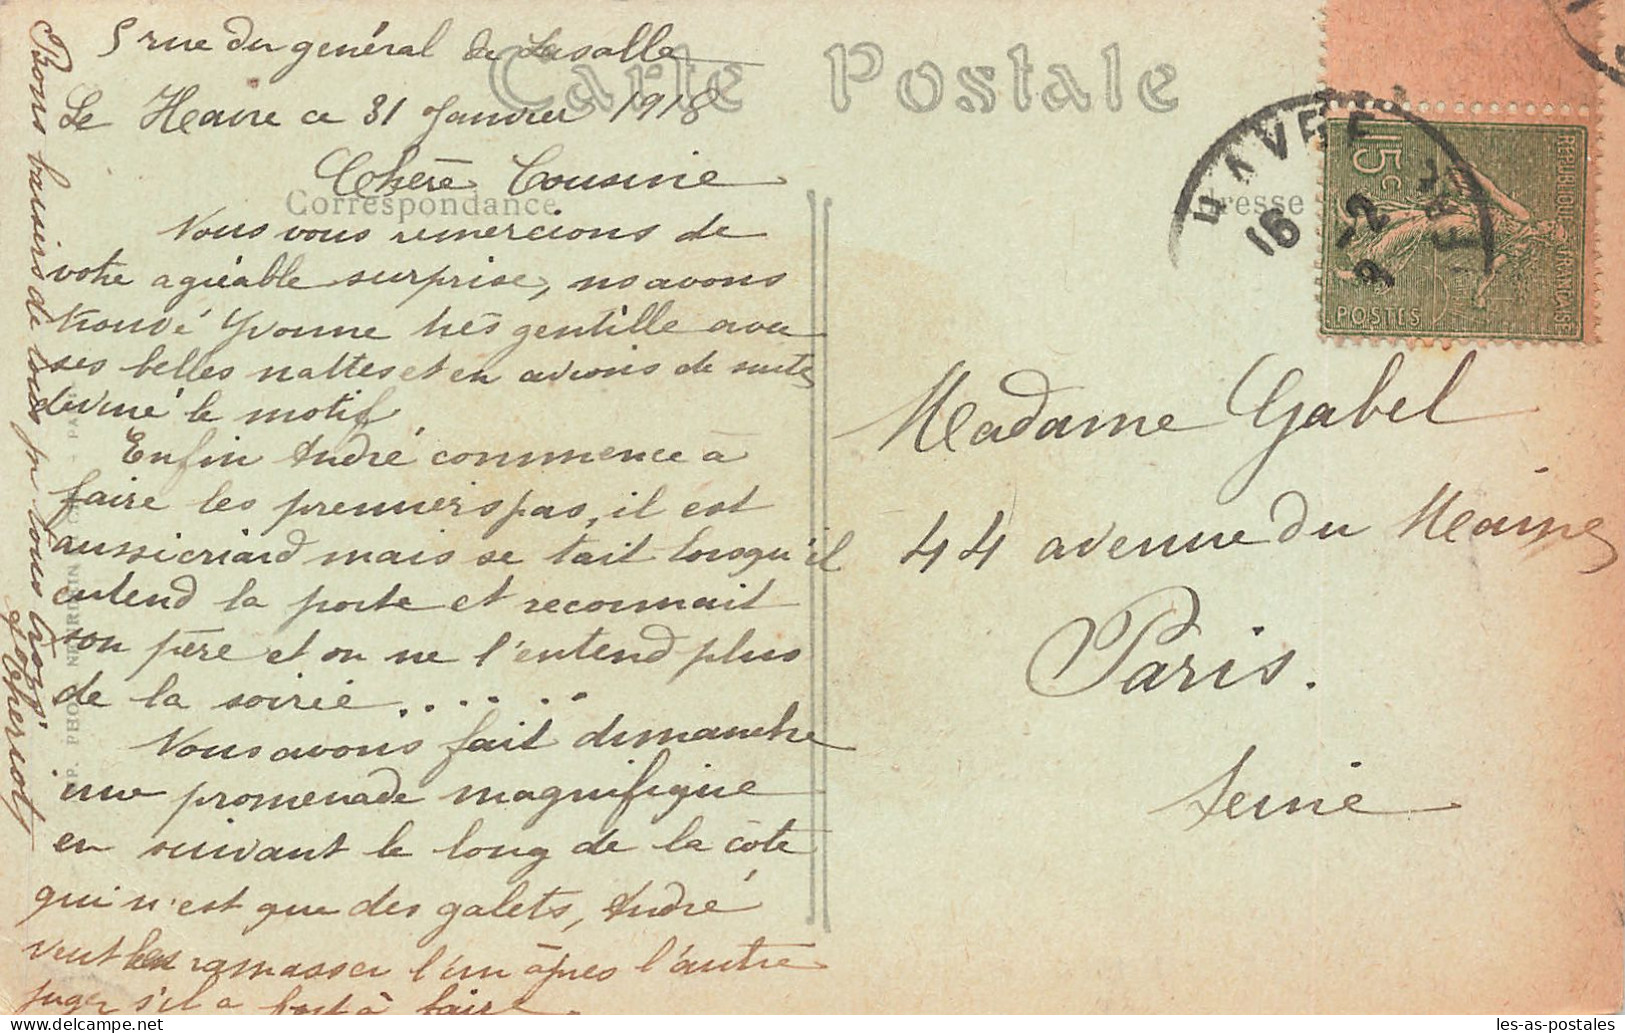 5 rue du général de Lasalle
Carte Postale
Le Havre ce 31 Janvier 1918
Chère Cousine
Correspondance
Nous vous remercions de
votre agréable surprise, ns avons
trouvé Yvonne très gentille avec
ses belles nattes et en avions de suite
deviné le motif.
Enfin André commence à
faire les premiers pas, il est
aussi criard mais se tait lorsqu'il
entend la porte et reconnait
son père et on ne l'entend plus
de la soirée . . . . . .
Nous avons fait dimanche
une promenade magnifique
en suivant le long de la côte
qui n'est que des galets, André
veut les ramasser l'un après l'autre
jugez s'il a fort à faire.
Bons baisers de tous pr tous trois
HAVRE
16
-2
15c
REPUBLIQUE FRANÇAISE
POSTES
Madame Gabel
44 avenue du Maine
Paris.
Seine
les-as-postales